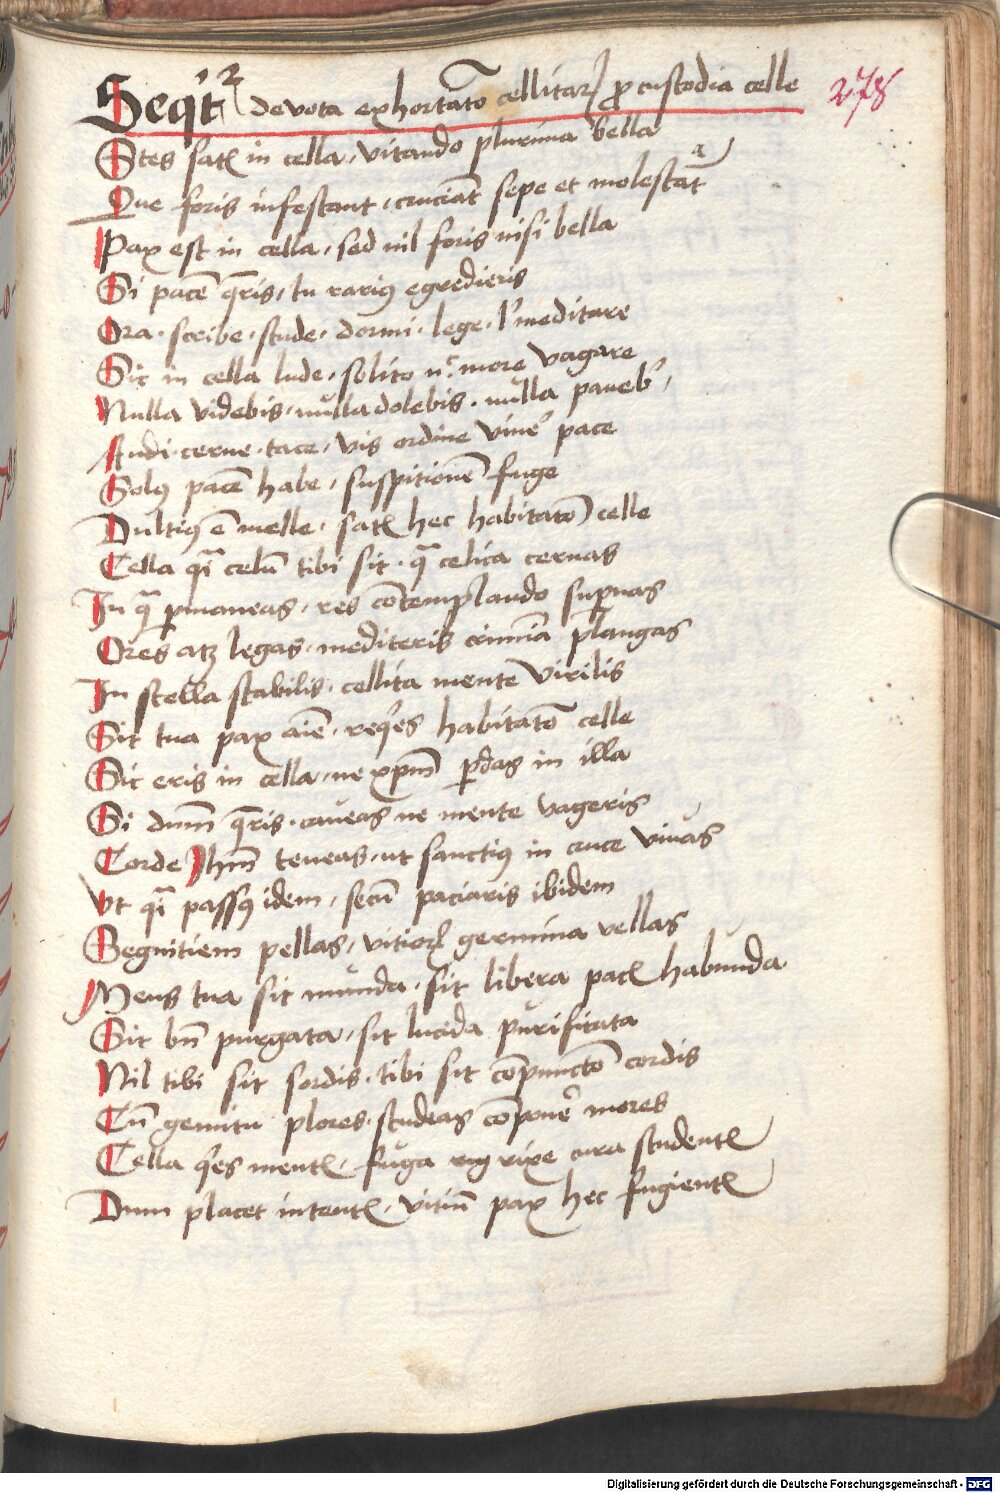 Seqt᷑ devota exhortato᷒ cellitaꝝ ꝓ custodia celle 278
Stes satꝭ in cella, vitando plurima bella
Que foris infestant, cruciat᷒ sepe et molestat᷒ a
Pax est in cella, sed nil foris nisi bella
Si pacē q̄ris, tu rariꝰ egredieris
Ora · scribe · stude · dormi · lege · lꝰ meditare
Sic in cella lude, solito nͨ more vagare
Nulla videbis, nulla dolebis, nulla paueb᷒,
Audi · cerne · tace, vis ordine viuē pace
Solꝰ pacē habe, suspitionē fuge
Dultiꝰ ē melle, satꝭ hec habitato᷒ celle
Cella qͣi celū tibi sit, qͣ celica cernas
In qͣ ꝑmaneas, res cōtemplando suꝑnas
Ores atꝫ legas, mediteris crimīa plangas
In stella stabilis, cellita mente virilis
Sit tua pax aīe, reqͥes habitato᷒ celle
Sic eris in cella, ne xp̄m ꝑdas in illa
Si dn̄m q̄ris, caueas ne mente vageris
Corde Jhm̄ teneas, ut sanctiꝰ in cruce viuas
Vt qͣi passꝰ idem, secū paciaris ibidem
Segnitiem pellas, vitioꝝ germina vellas
Mens tua sit munda, sit libera pacꝭ habunda
Sit bn̄ purgata, sit lucida purifitata
Nil tibi sit sordis, tibi sit cōpuncto᷒ cordis
Cū gemitu plores, studeas cōponē mores
Cella qͥes mentꝭ, fuga rixe cura studentꝭ
Dum placet intentꝭ, vitiū pax hec fugientꝭ
Digitalisierung gefördert durch die Deutsche Forschungsgemeinschaft - DFG